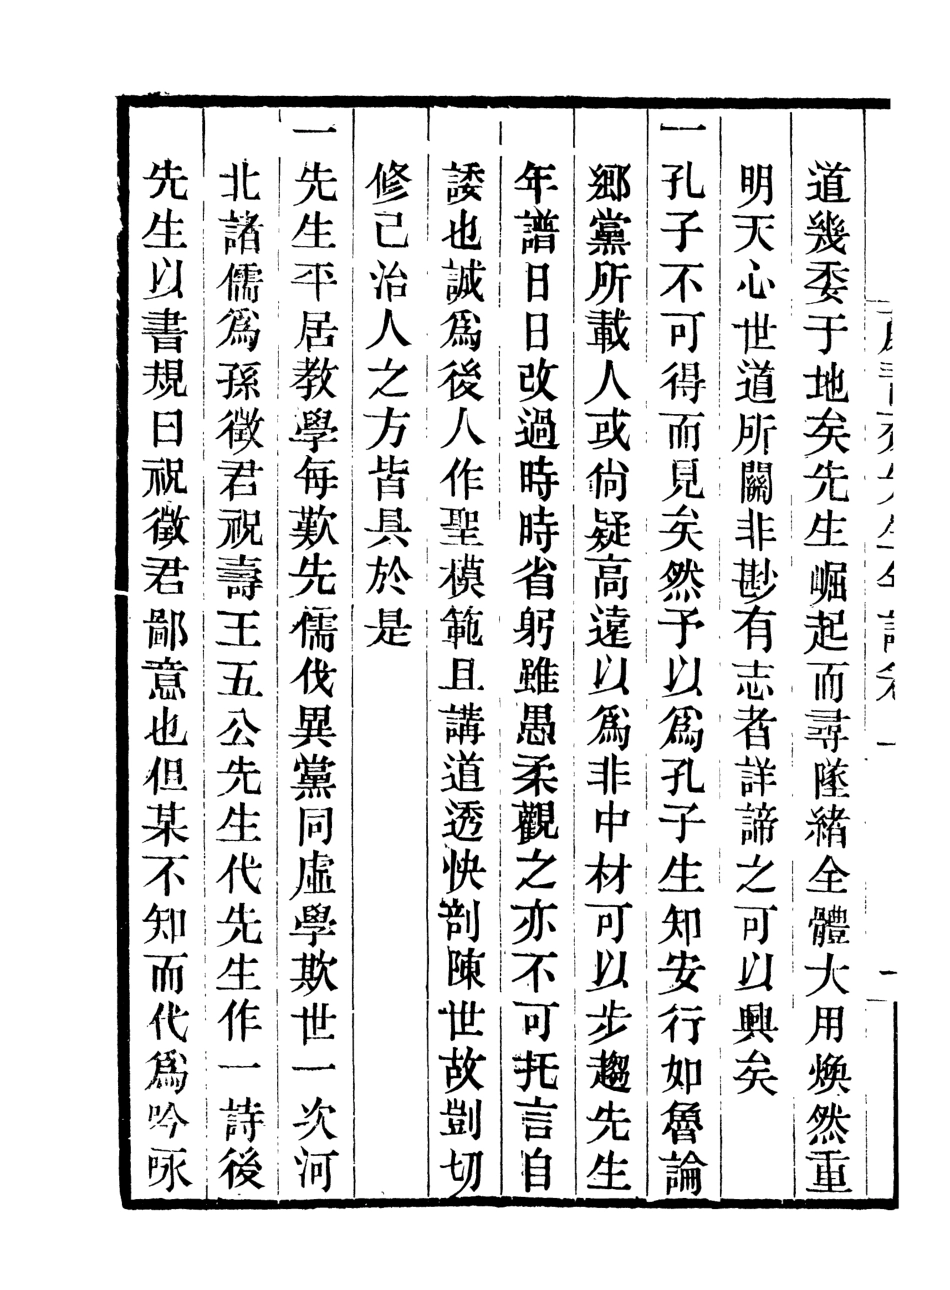 道幾委于地矣先生崛起而尋墜緒全體大用煥然重
明天心世道所關非尠有志者詳諦之可以興矣
一孔子不可得而見矣然予以爲孔子生知安行如魯論
鄉黨所載人或尙疑高遠以爲非中材可以步趨先生
年譜日日改過時時省躬雖愚柔觀之亦不可托言自
諉也誠爲後人作聖模範且講道透快剖陳世故剴切
修己治人之方皆具於是
一先生平居教學每歎先儒伐異黨同虛學欺世一次河
北諸儒爲孫徵君祝壽王五公先生代先生作一詩後
先生以書規曰祝徵君鄙意也但某不知而代爲吟咏